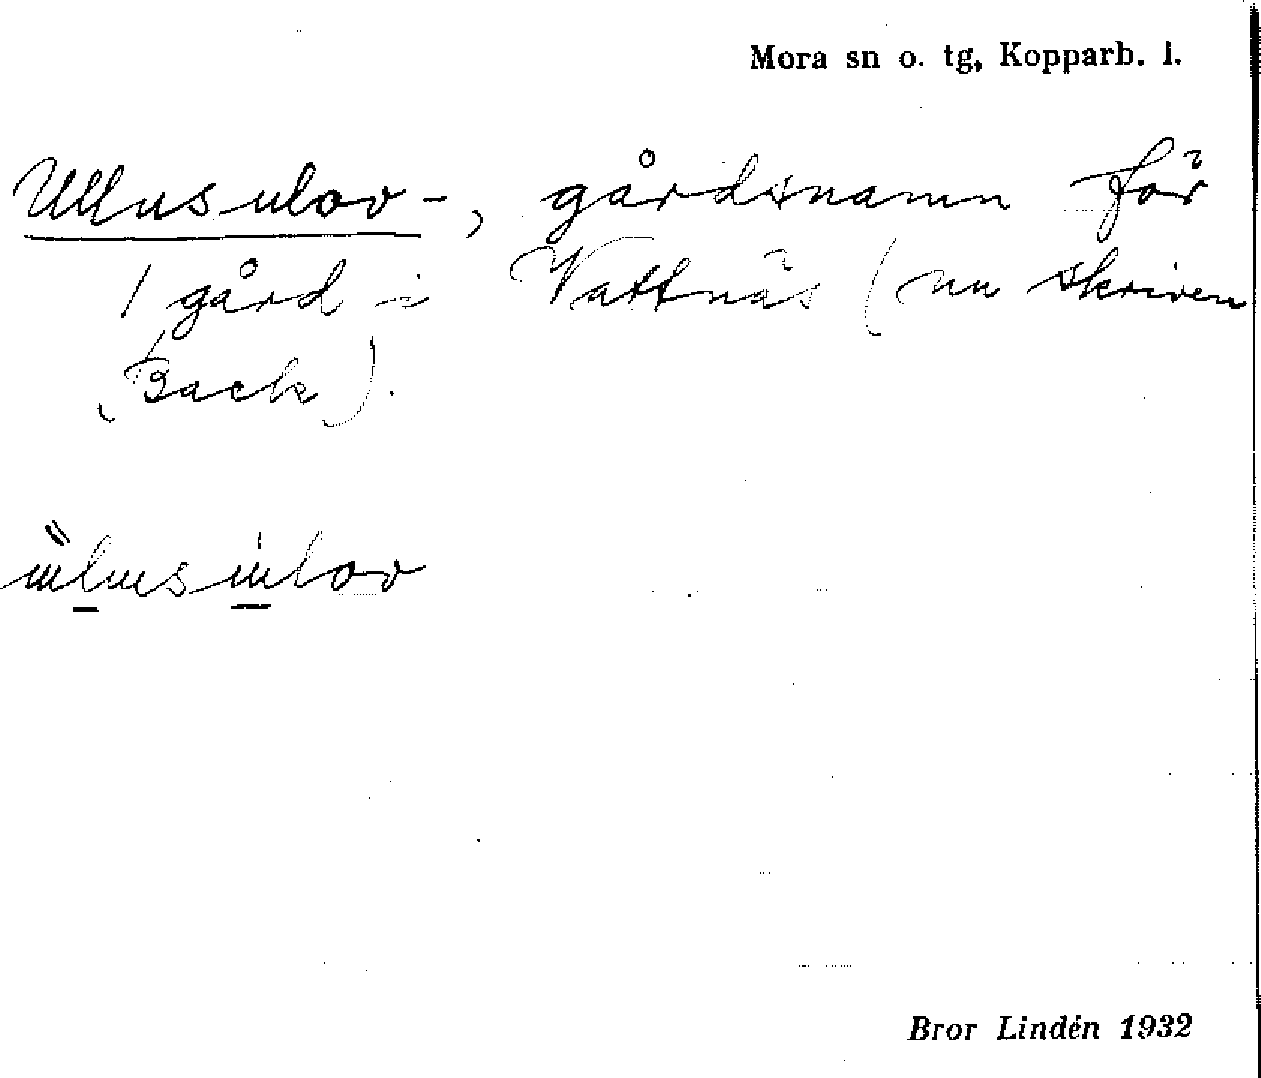 Mora sn o. tg, Kopparb. l.
Ullus ulov-, gårdsnamn för
1 gård i Vattnäs (nu skriven
Back).
Bror Lindén 1932